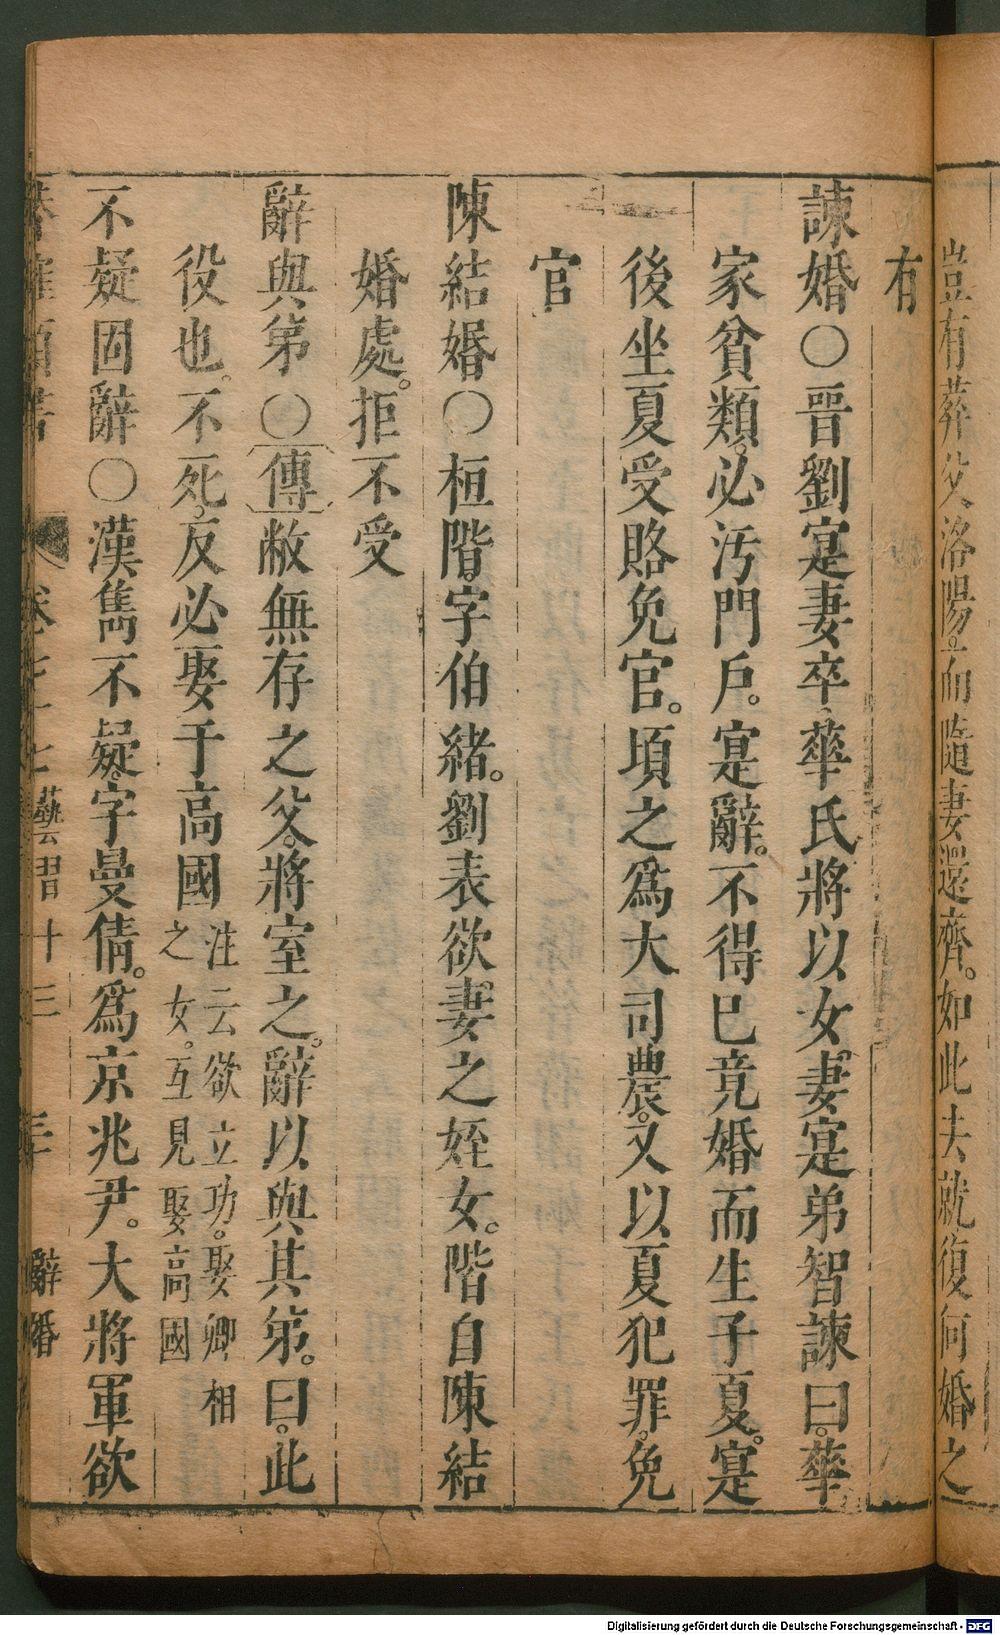 豈有葬父洛陽。而隨妻還齊。如此去就復何婚之
有
諫婚○晉劉寔妻卒。華氏將以女妻寔弟智諫曰。華
家貧類。必汚門戶。寔辭。不得已竟婚而生子夏。寔
後坐夏受賂免官。頃之爲大司農。又以夏犯罪。免
官
陳結婚○桓階。字伯緒。劉表欲妻之姪女。階自陳結
婚處。拒不受
辭與弟○傳敝無存之父。將室之。辭以與其弟。曰。此
役也。不死。反必娶于高國注云欲立功。娶卿相
之女。互見娶高國
不疑固辭○漢雋不疑。字曼倩。爲京兆尹。大將軍欲
卷七十七 藝習十三 三 辭婚
Digitalisierung gefördert durch die Deutsche Forschungsgemeinschaft - DFG